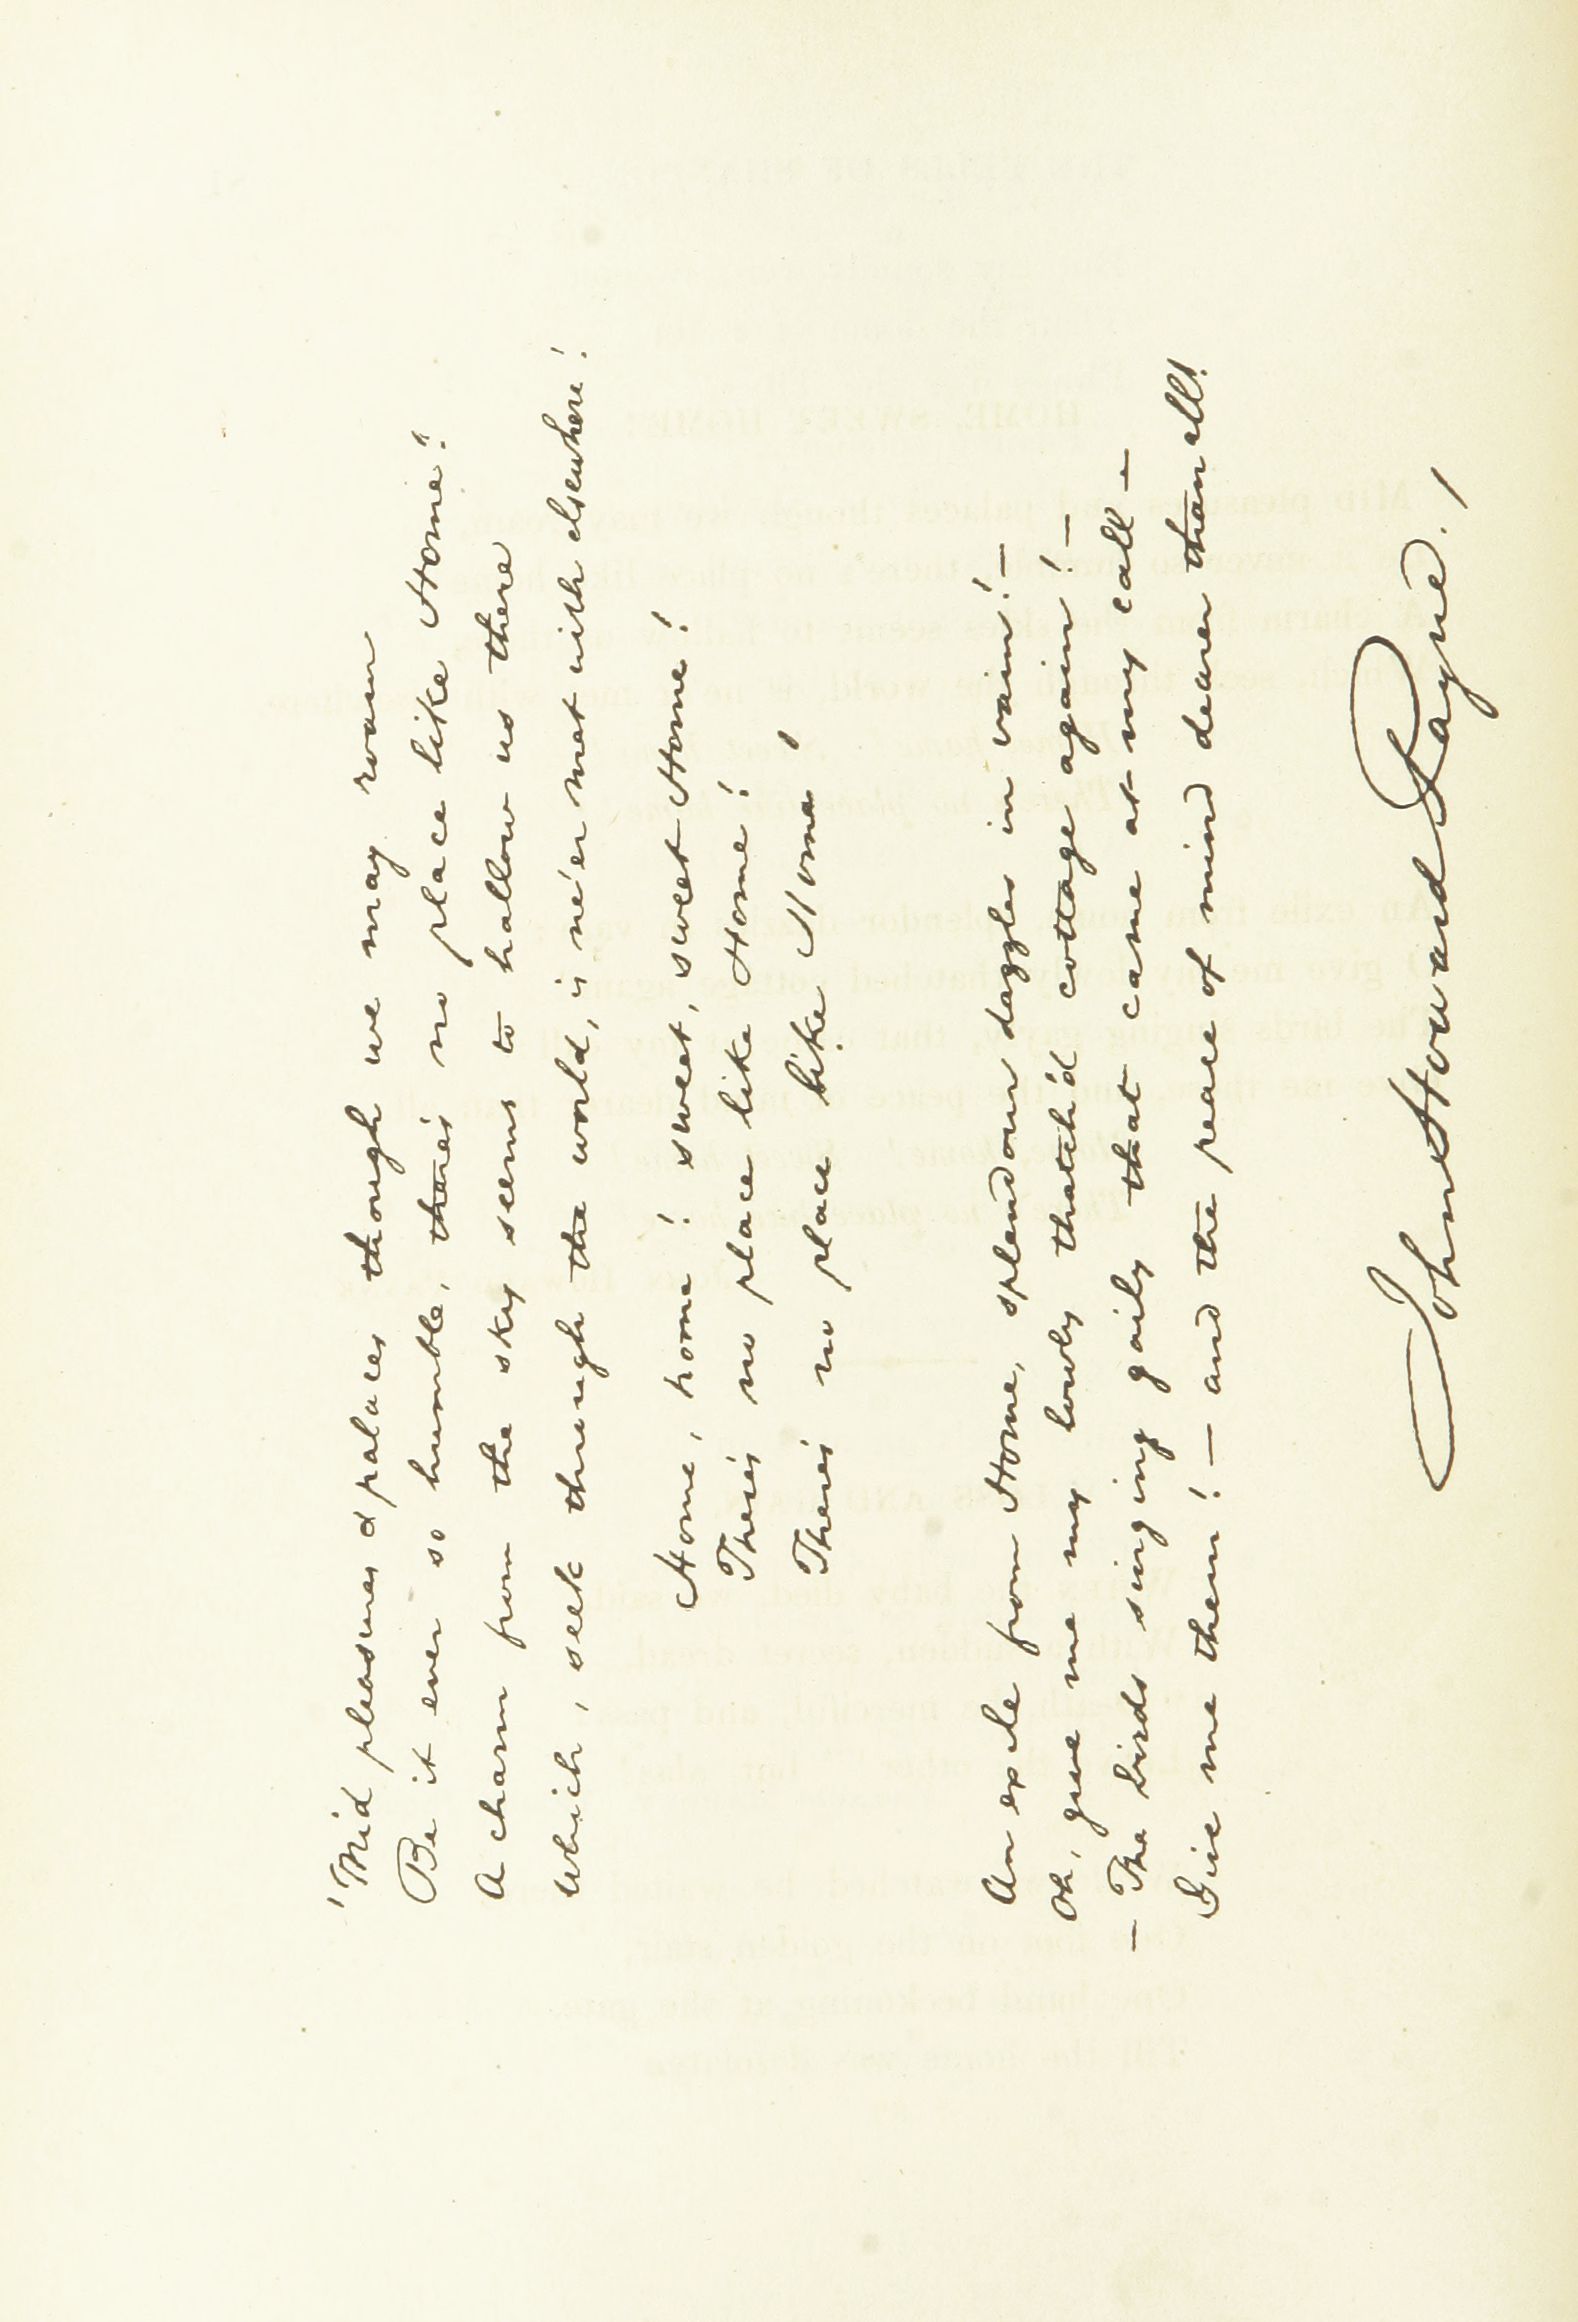 'Mid pleasures & palaces though we may roam
Be it ever so humble, there's no place like Home!
A charm from the sky seems to hallow us there
Which, seek through the world, is ne'er met with elsewhere!
Home, home! sweet, sweet Home!
There's no place like Home!
There's no place like Home!
An exile from Home, splendour dazzles in vain! —
Oh, give me my lowly thatch'd cottage again! —
— The birds singing gaily that came at my call —
Give me them! — and the peace of mind dearer than all!
John Howard Payne.